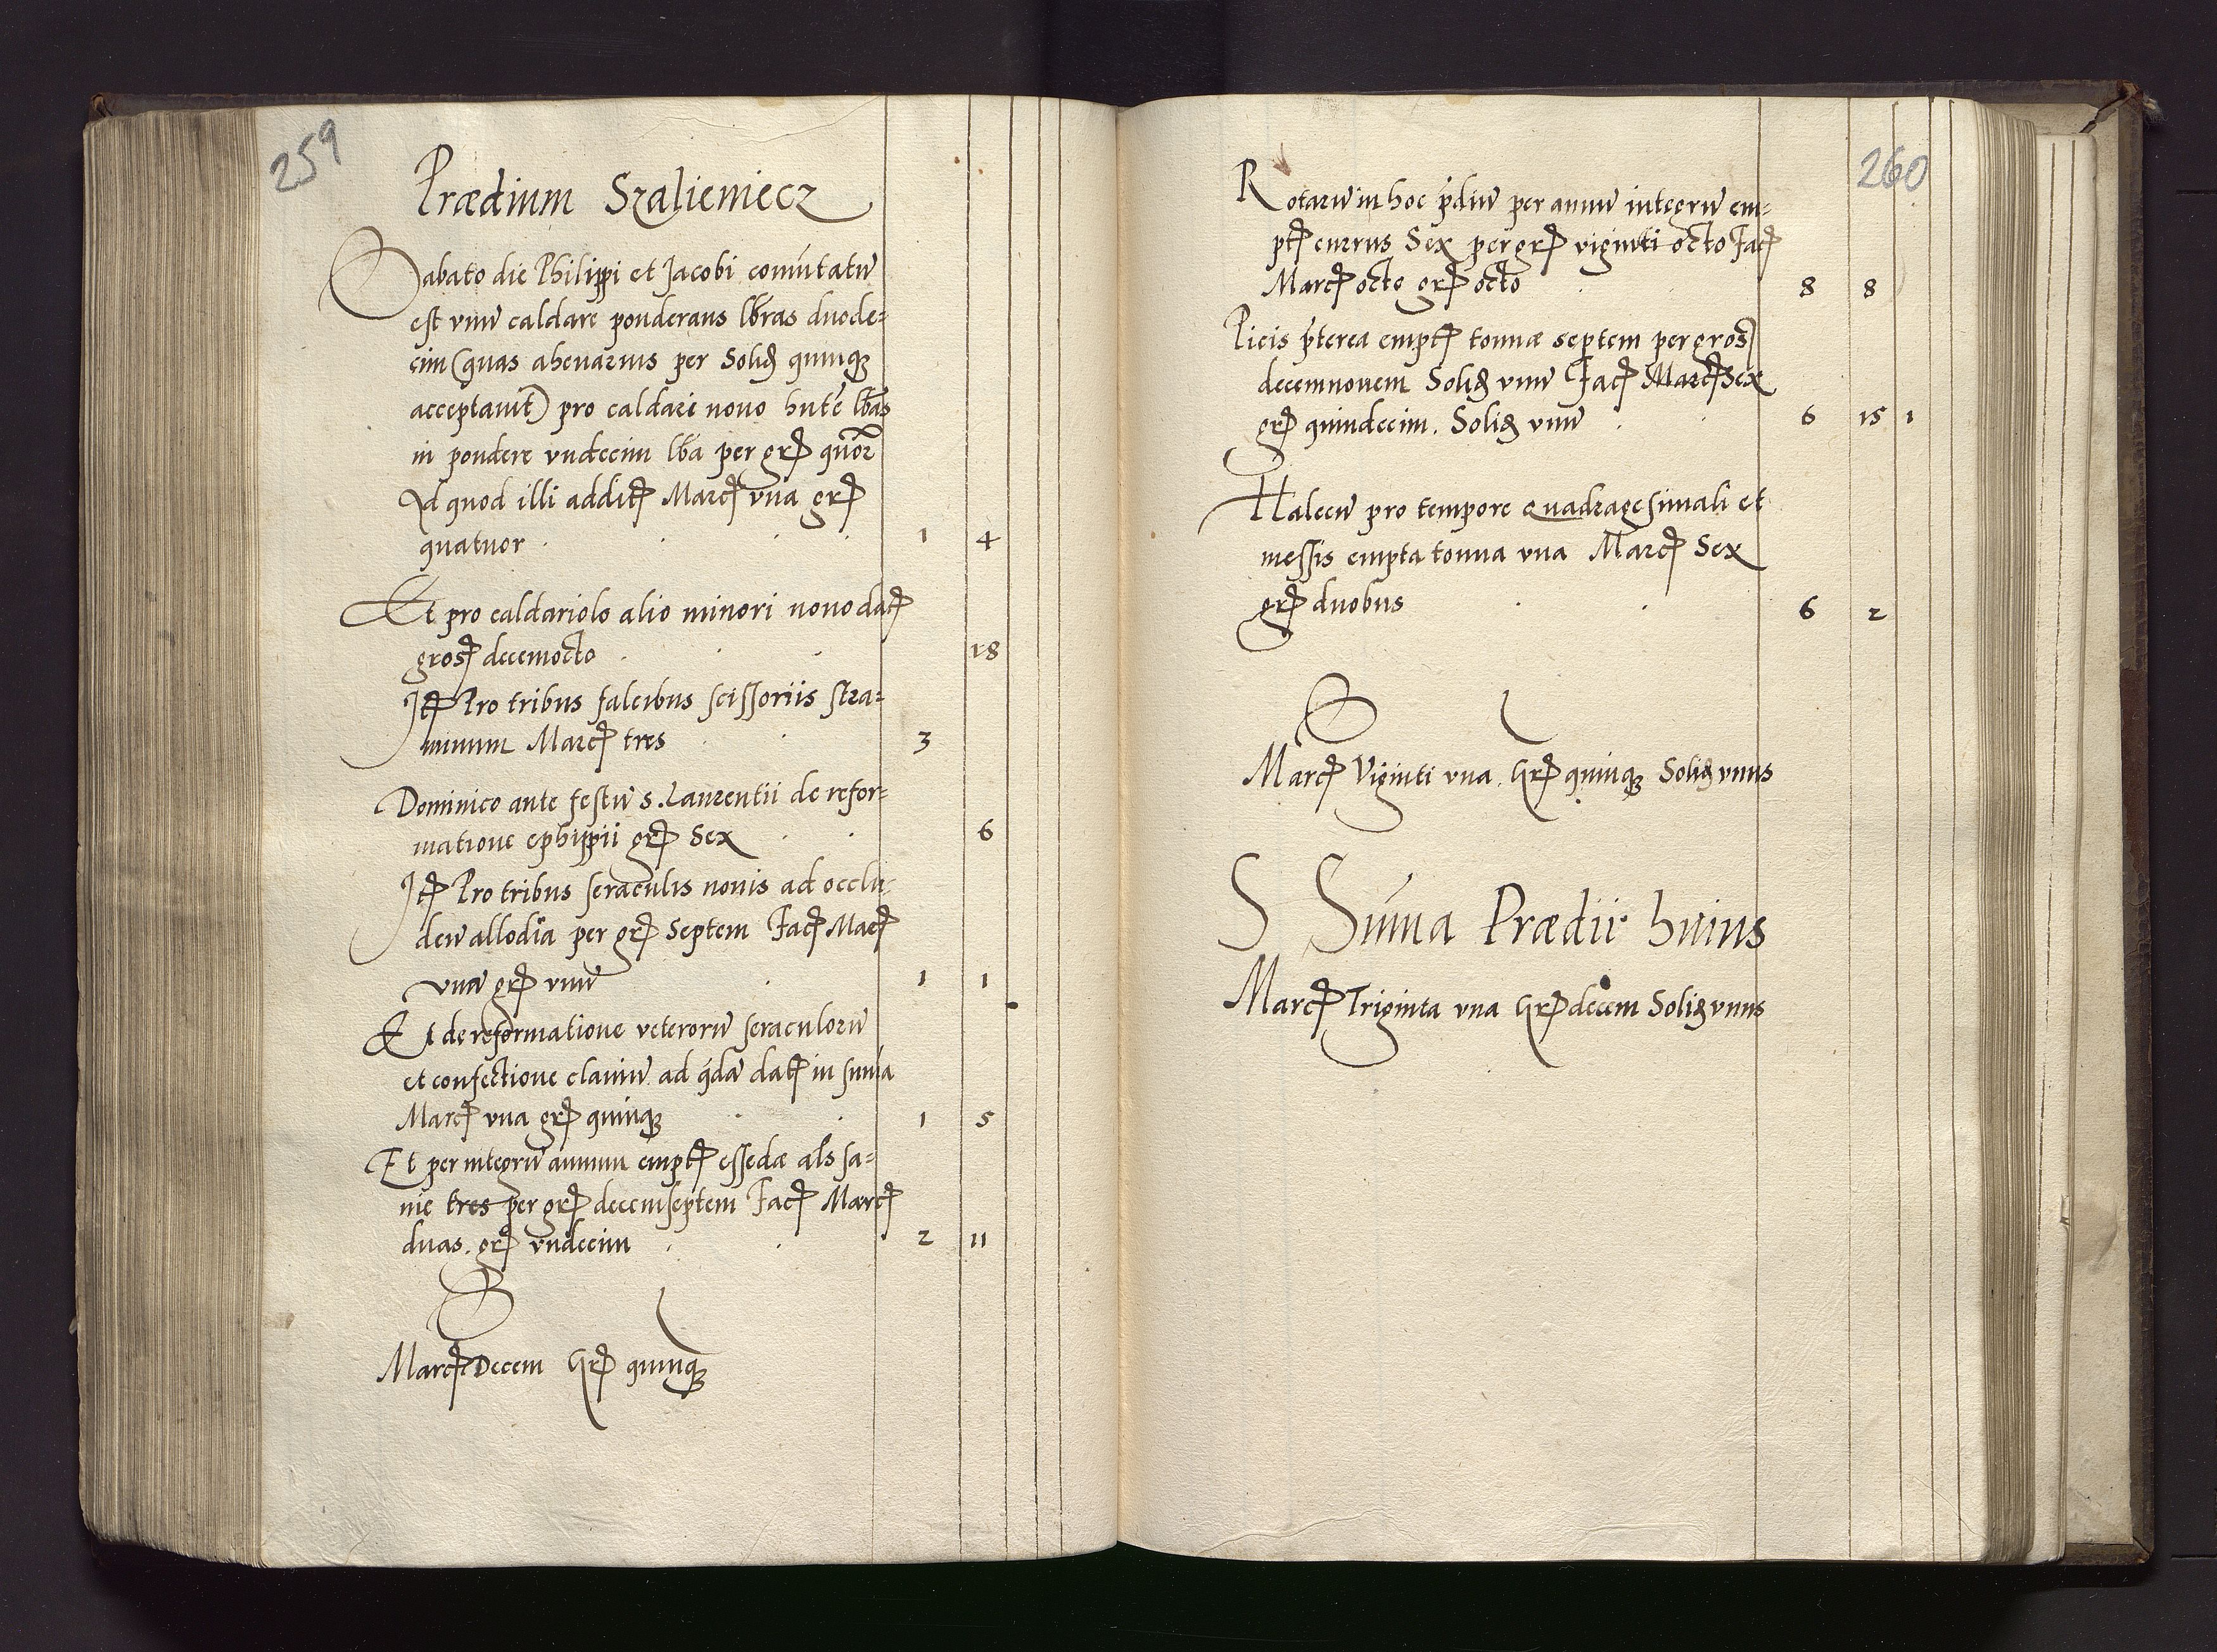 259
Prædium Szalieniecz
Sabato die Philippi et Jacobi com̄utatū
est vnū caldare ponderans lb̄ras duode=
cim (quas ahenarius per Solid quinq
acceptauit) pro caldari nouo hn̄te lb̄as
in pondere vndecim lb̄a per gr quōr
Id quod illi addit Marc vna gr
quatuor 1 4
Et pro caldariolo alio minori nouo dat
gros decemocto 18
It Pro tribus falcibus scissoriis stra=
minum Marc tres 3
Dominico ante festū s. Laurentii de refor=
matione ephippii gr Sex 6
It Pro tribus seraculis nouis ad occlu=
den̄ allodia per gr Septem Fac Marc
vnā gr vnū 1 1
Et de reformatione veterorū seraculorū
et confectione clauiū ad q́da dat in sum̄a
Marc vna gr quinq 1 5
Et per integrū annum empt essedæ als sa=
nie tres per gr decemseptem Fac Marc
duas. gr vndecim 2 11
S
Marc Decem Gr quinq
260
Rotarū in hoc p̄diū per annū integrū em=
pt currus Sex per gr viginti octo Fac
Marc octo gr octo 8 8
Picis p̄terea empt tonnæ septem per gros
decemnouem Solid vnū Fac Marc Sex
gr quindecim. Solid vnū 6 15 1
Halecū pro tempore quadragesimali et
messis empta tonna vna Marc Sex
gr duobus 6 2
S
Marc Viginti vna Gr quinq Solid vnus
S Sum̄a Prædii huius
Marc Triginta vna Gr decem Solid vnus